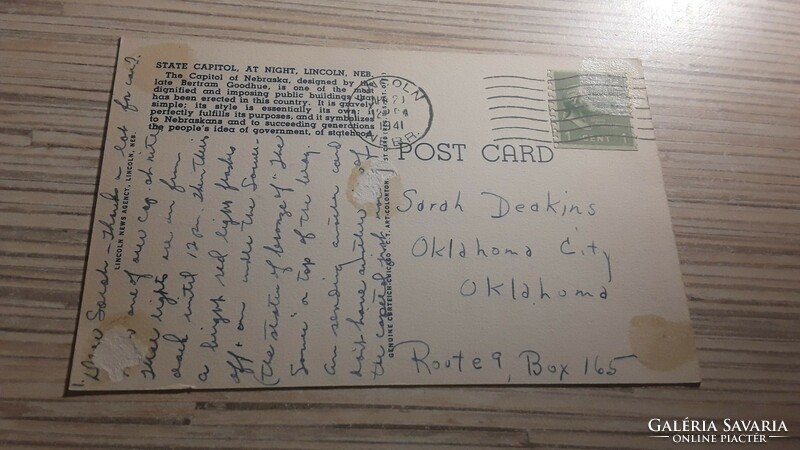 STATE CAPITOL, AT NIGHT, LINCOLN, NEB.
The Capitol of Nebraska, designed by the
late Bertram Goodhue, is one of the most
dignified and imposing public buildings that
has been erected in this country. It is gravely
simple; its style is essentially its own; it
perfectly fulfills its purposes, and it symbolizes
to Nebraskans and to succeeding generations
the people's idea of government, of statehood
LINCOLN NEWS AGENCY, LINCOLN, NEB.
Dear Sarah - Thanks a lot for car?
one of our Cap. at nite
These lights are on from
dark until 12 pm. then this
a bright red light flashes
off + on under the Sower-
(the statue of bronze of "The
Sower" on top of the bldg.
Am sending another card
don't have another of
the capitol just now
1.
GENUINE CURTEICH-CHICAGO "C.T. ART-COLORTON
LINCOLN
21
1941
NEBR.
1 CENT 1
POST CARD
Sarah Deakins
Oklahoma City
Oklahoma
Route 9, Box 165
GALÉRIA SAVARIA
ONLINE PIACTÉR